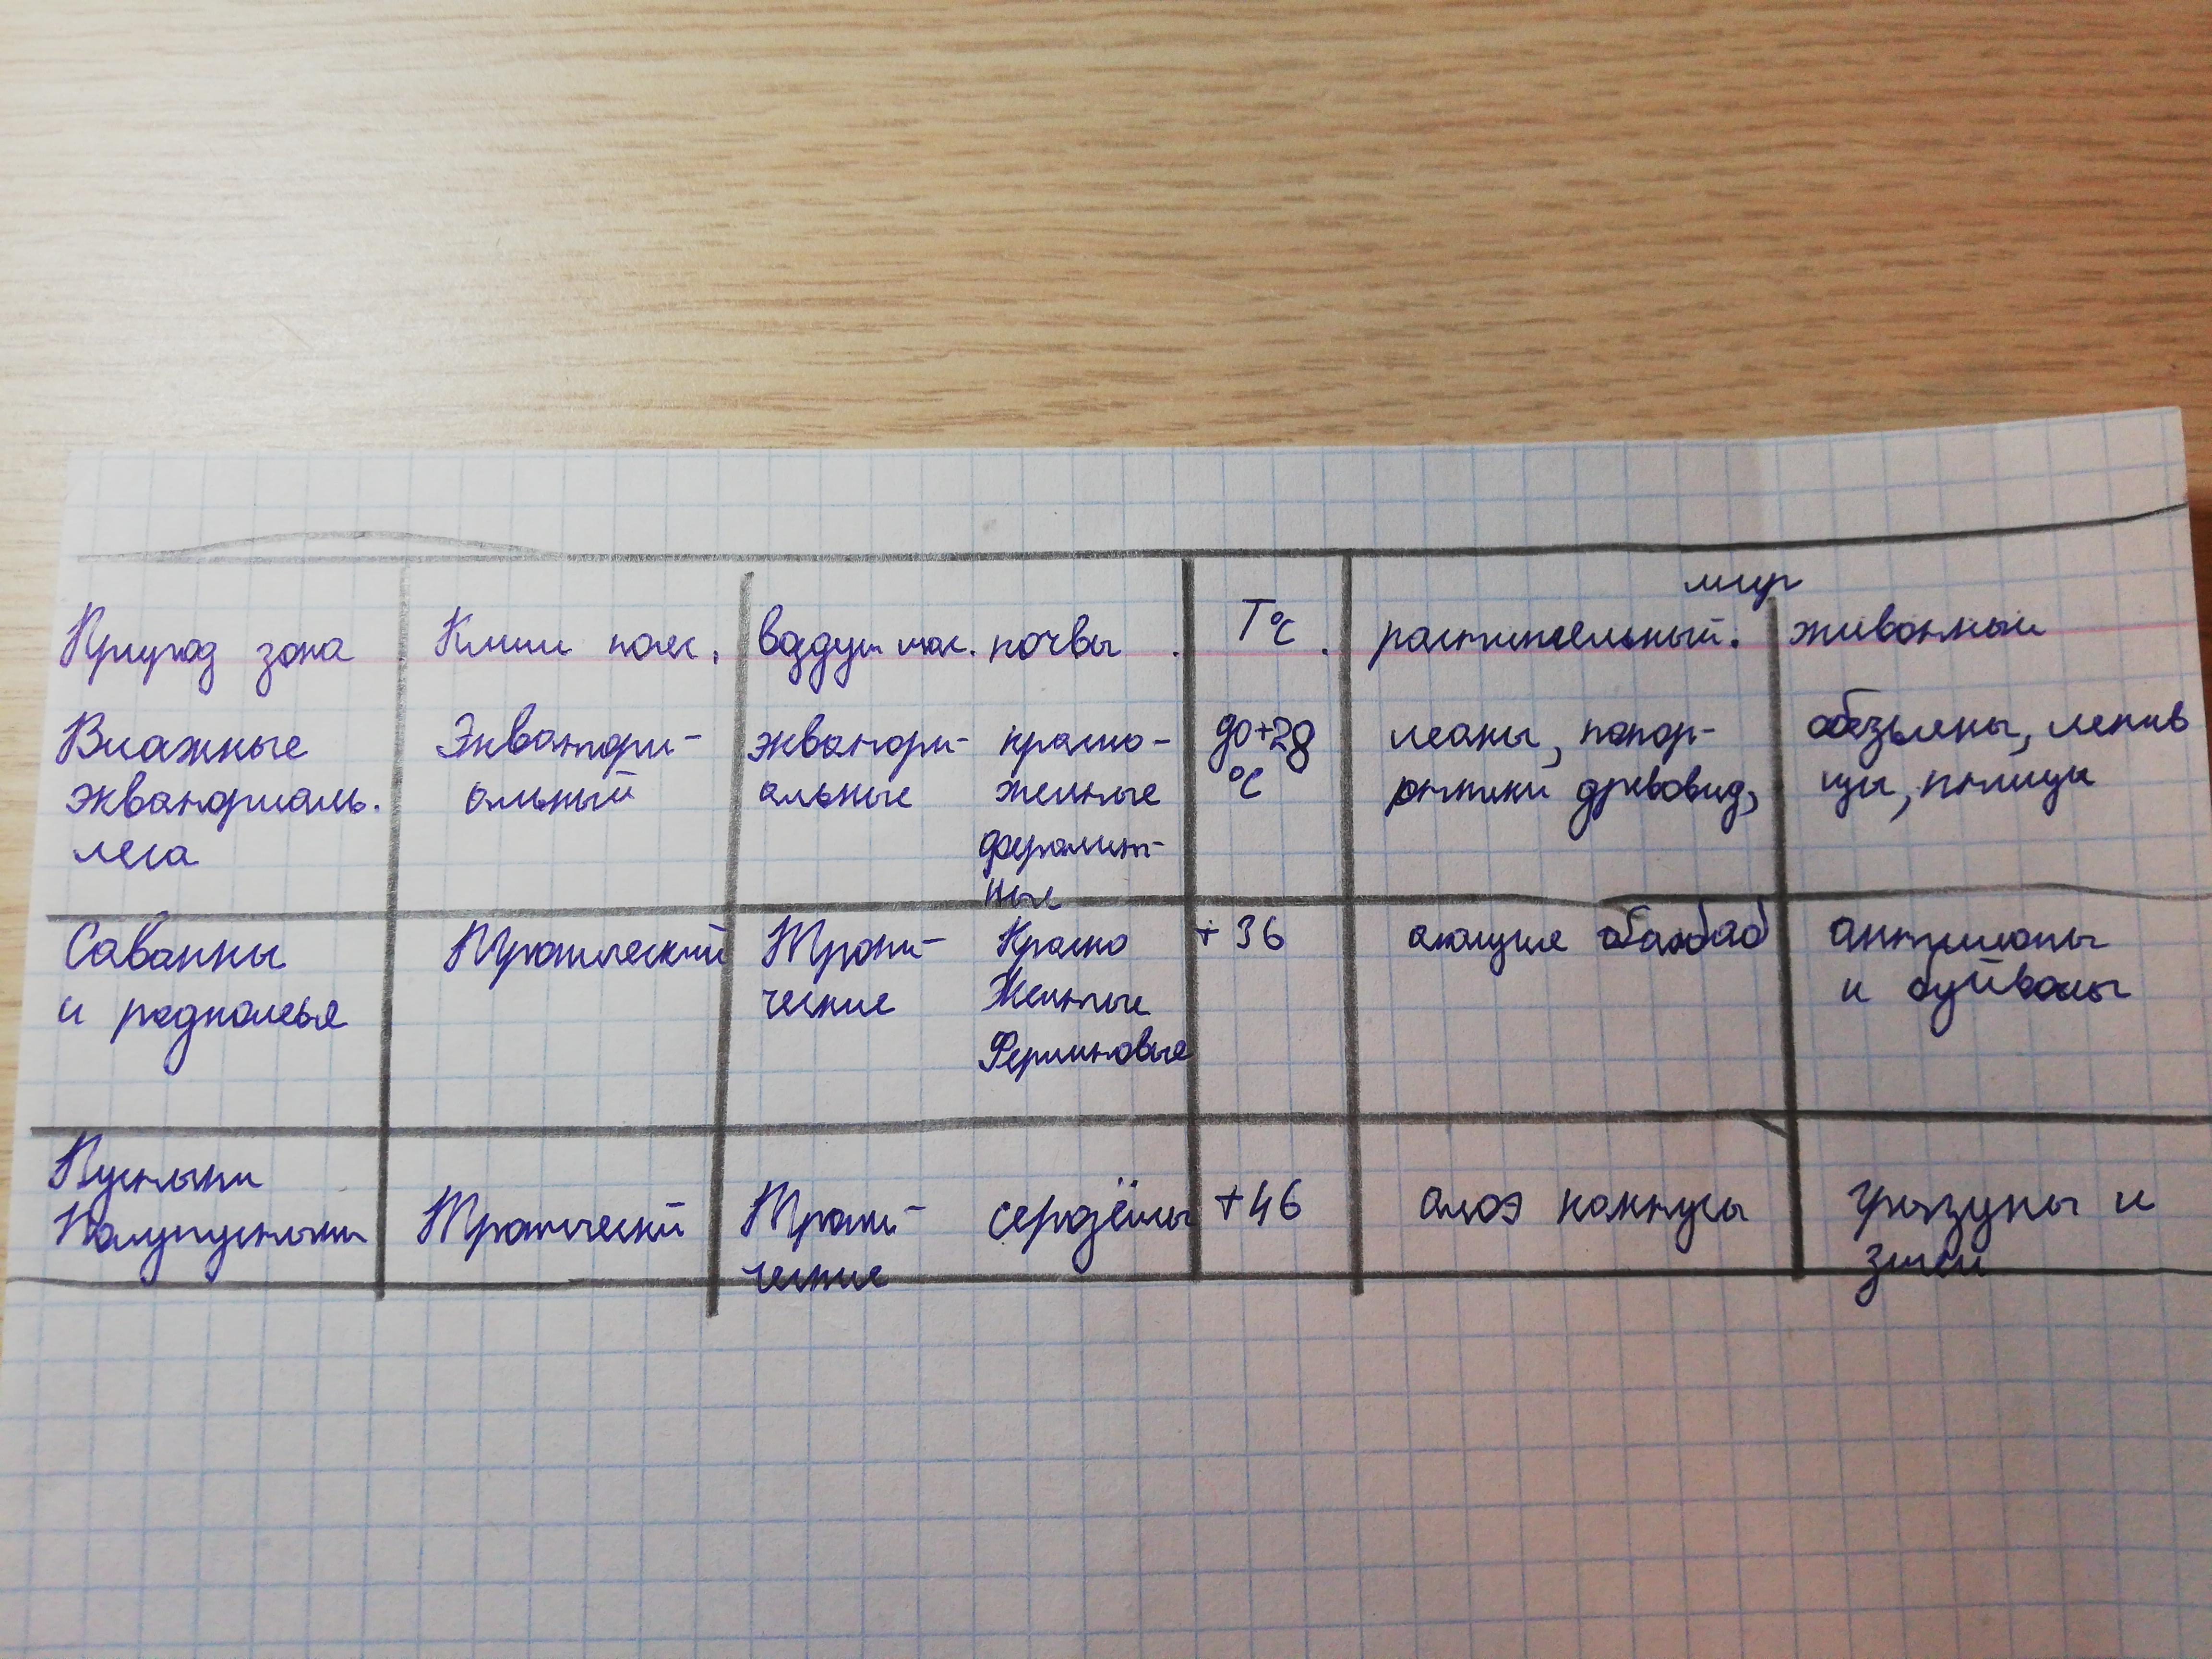 мир
Природ зона Клим пояс. воздуш мас. почвы. T°C. растительный. животный
Влажные Экватори- экватори- красно- до+28 леаны, папор- обезьяны, ленив
экваториаль. альный альные желтые °C отники древовид, цы, птицы
леса фералит-
ные
Саванны Тропический Тропи- Красно +36 акации баобаб антилопы
и редколесья ческие Желтые и буйволы
Ферлитовые
Пустыни
Полупустыни Тропический Тропи- серозёмы +46 алоэ кактусы грызуны и
ческие змеи